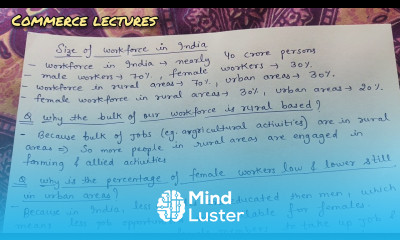 COMMERCE LECTURES
Size of workforce in India
- workforce in India → nearly 40 crore persons
- male workers → 70%, female workers → 30%
- workforce in rural areas → 70%, urban areas → 30%.
- female workforce in rural areas → 30%, urban areas → 20%.
Q why the bulk of our workforce is rural based?
- Because bulk of jobs (eg: agricultural activities) are in rural
areas => So more people in rural areas are engaged in
farming & allied activities
Q why is the percentage of female workers low & lower still
in urban areas?
Because in India, less educated men, which
means less job for females
to take up job
Mind
Luster